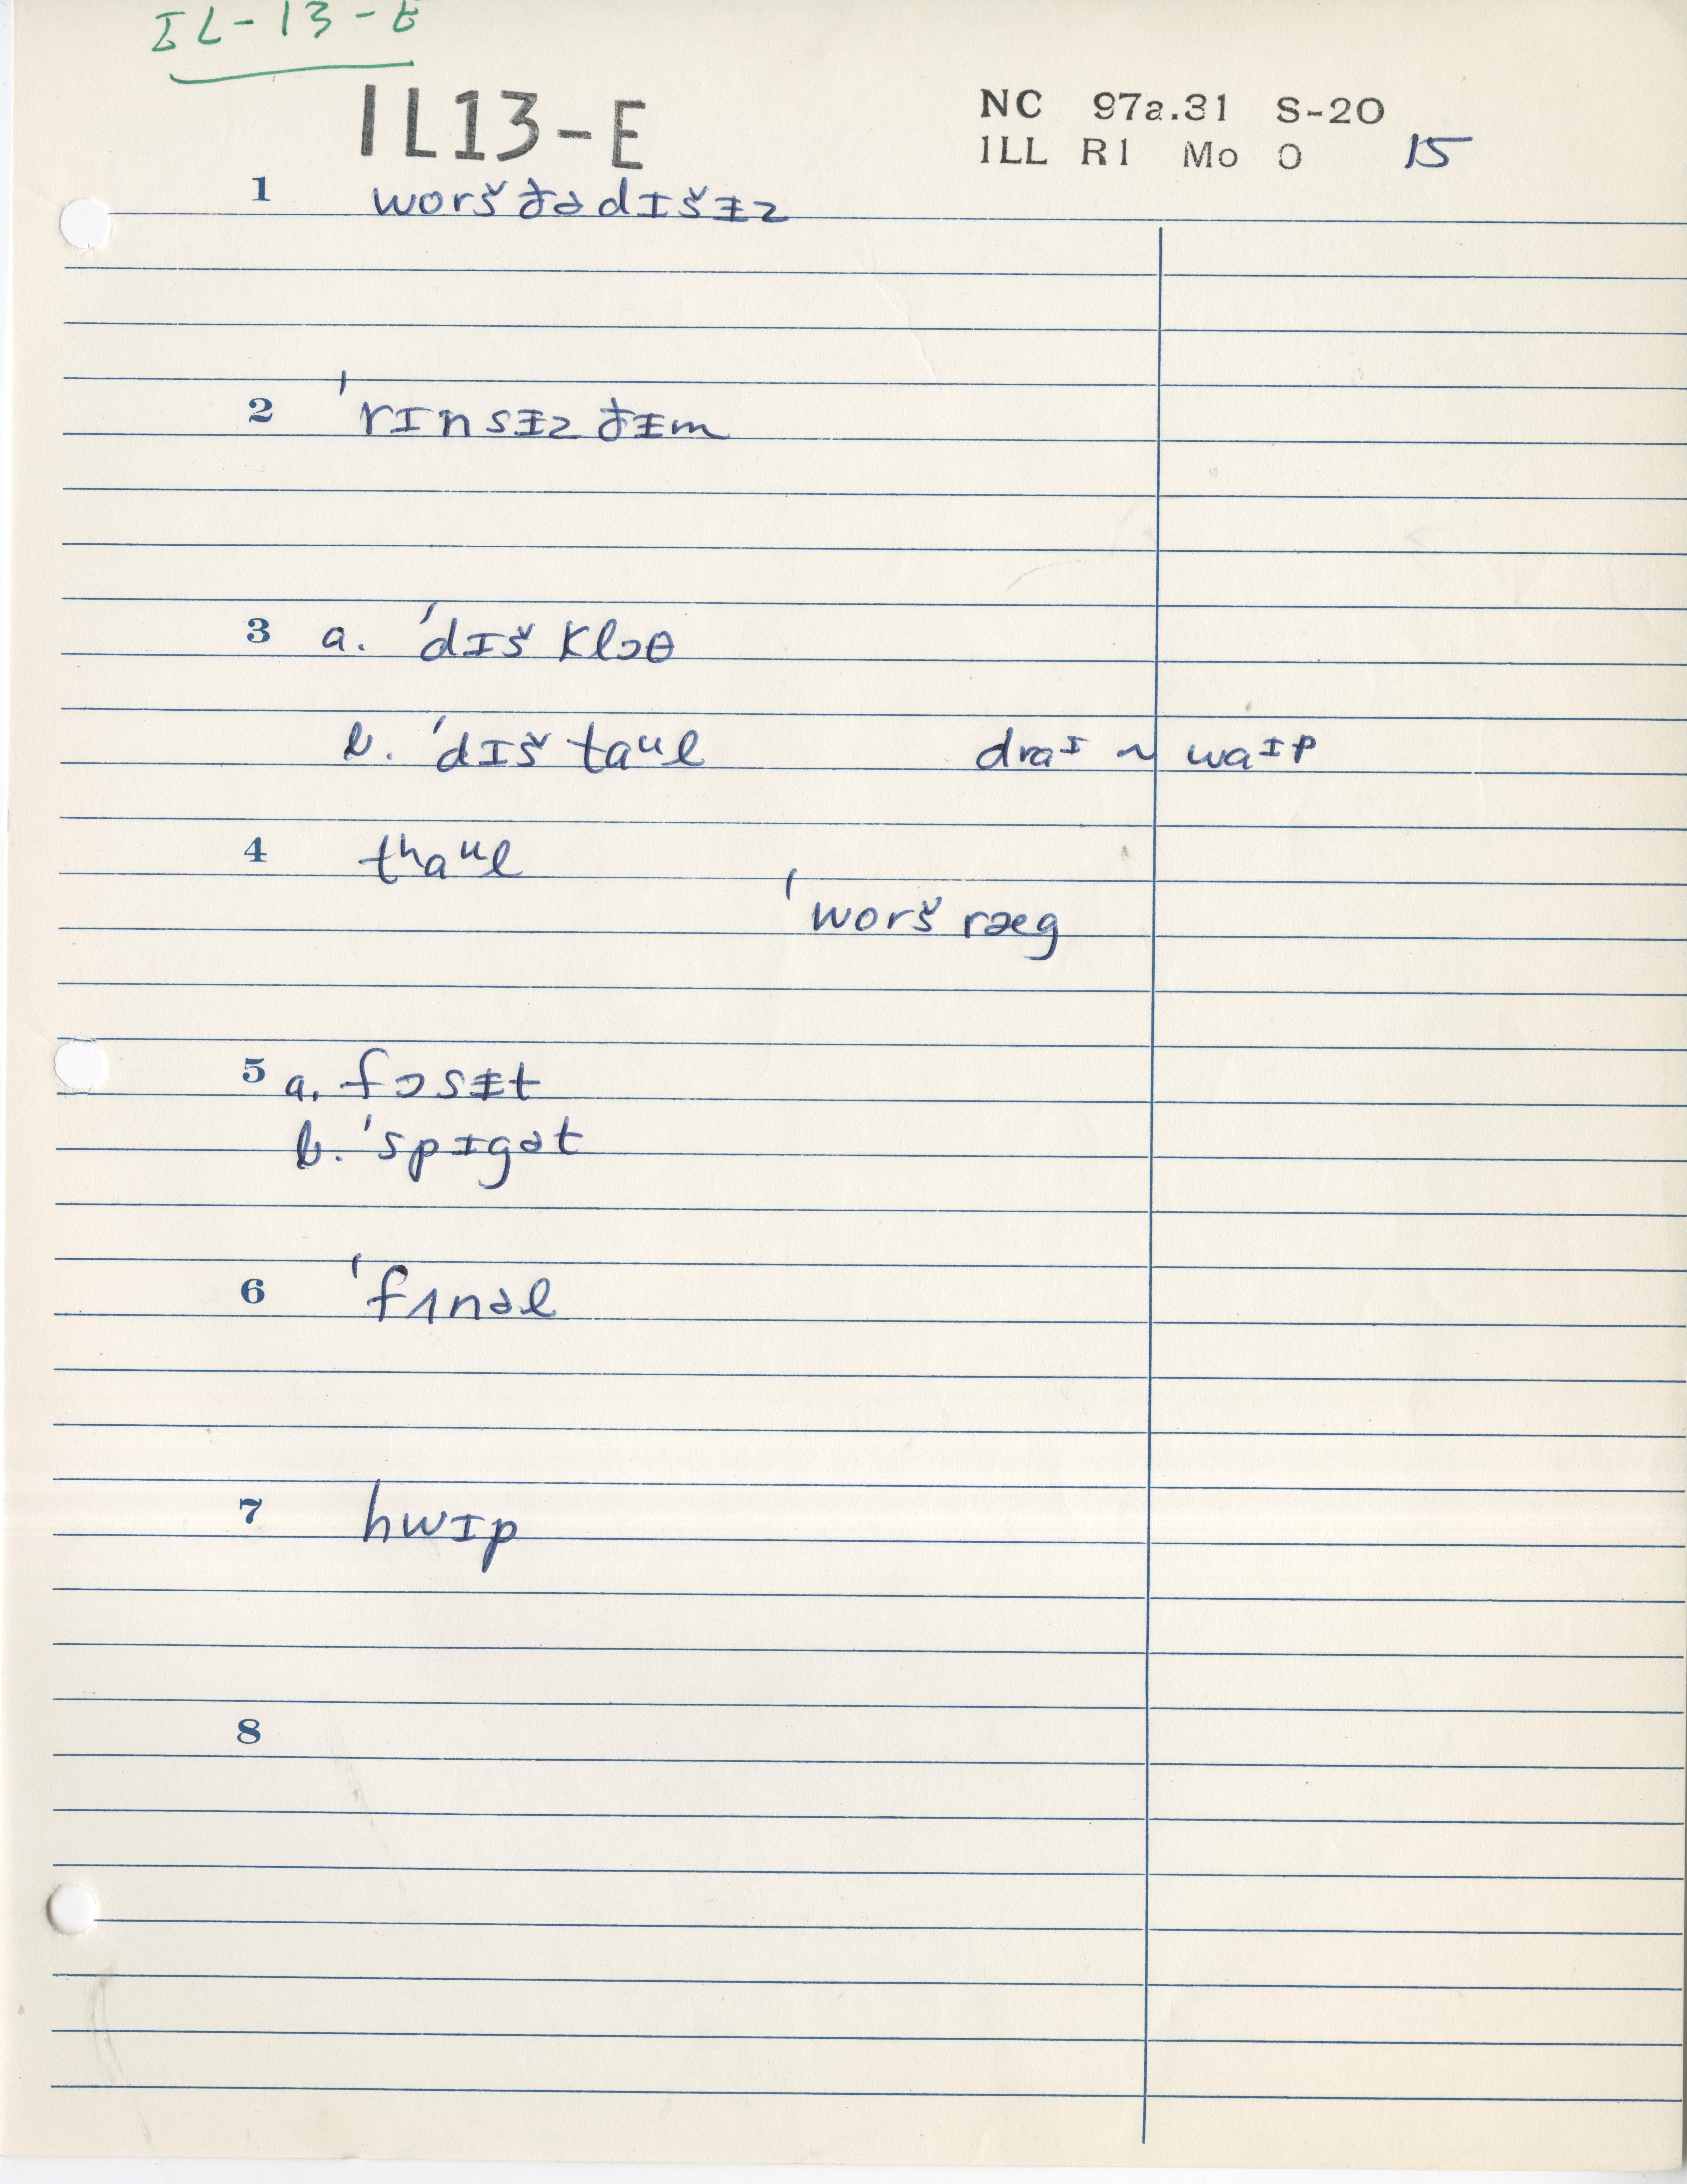 IL-13-E
IL13-E
NC 97a.31 S-20
ILL R1 Mo O 15
1 worš ðə dɪšᵻz
2 ˈrɪnsᵻz ðᵻm
3 a. ˈdɪš klɔθ
b. ˈdɪš taᵘl draᶦ ~ waᶦp
4 tʰaᵘl
ˈworš ræg
5 a. fɔsᵻt
b. ˈspɪgət
6 ˈfʌnəl
7 hwɪp
8